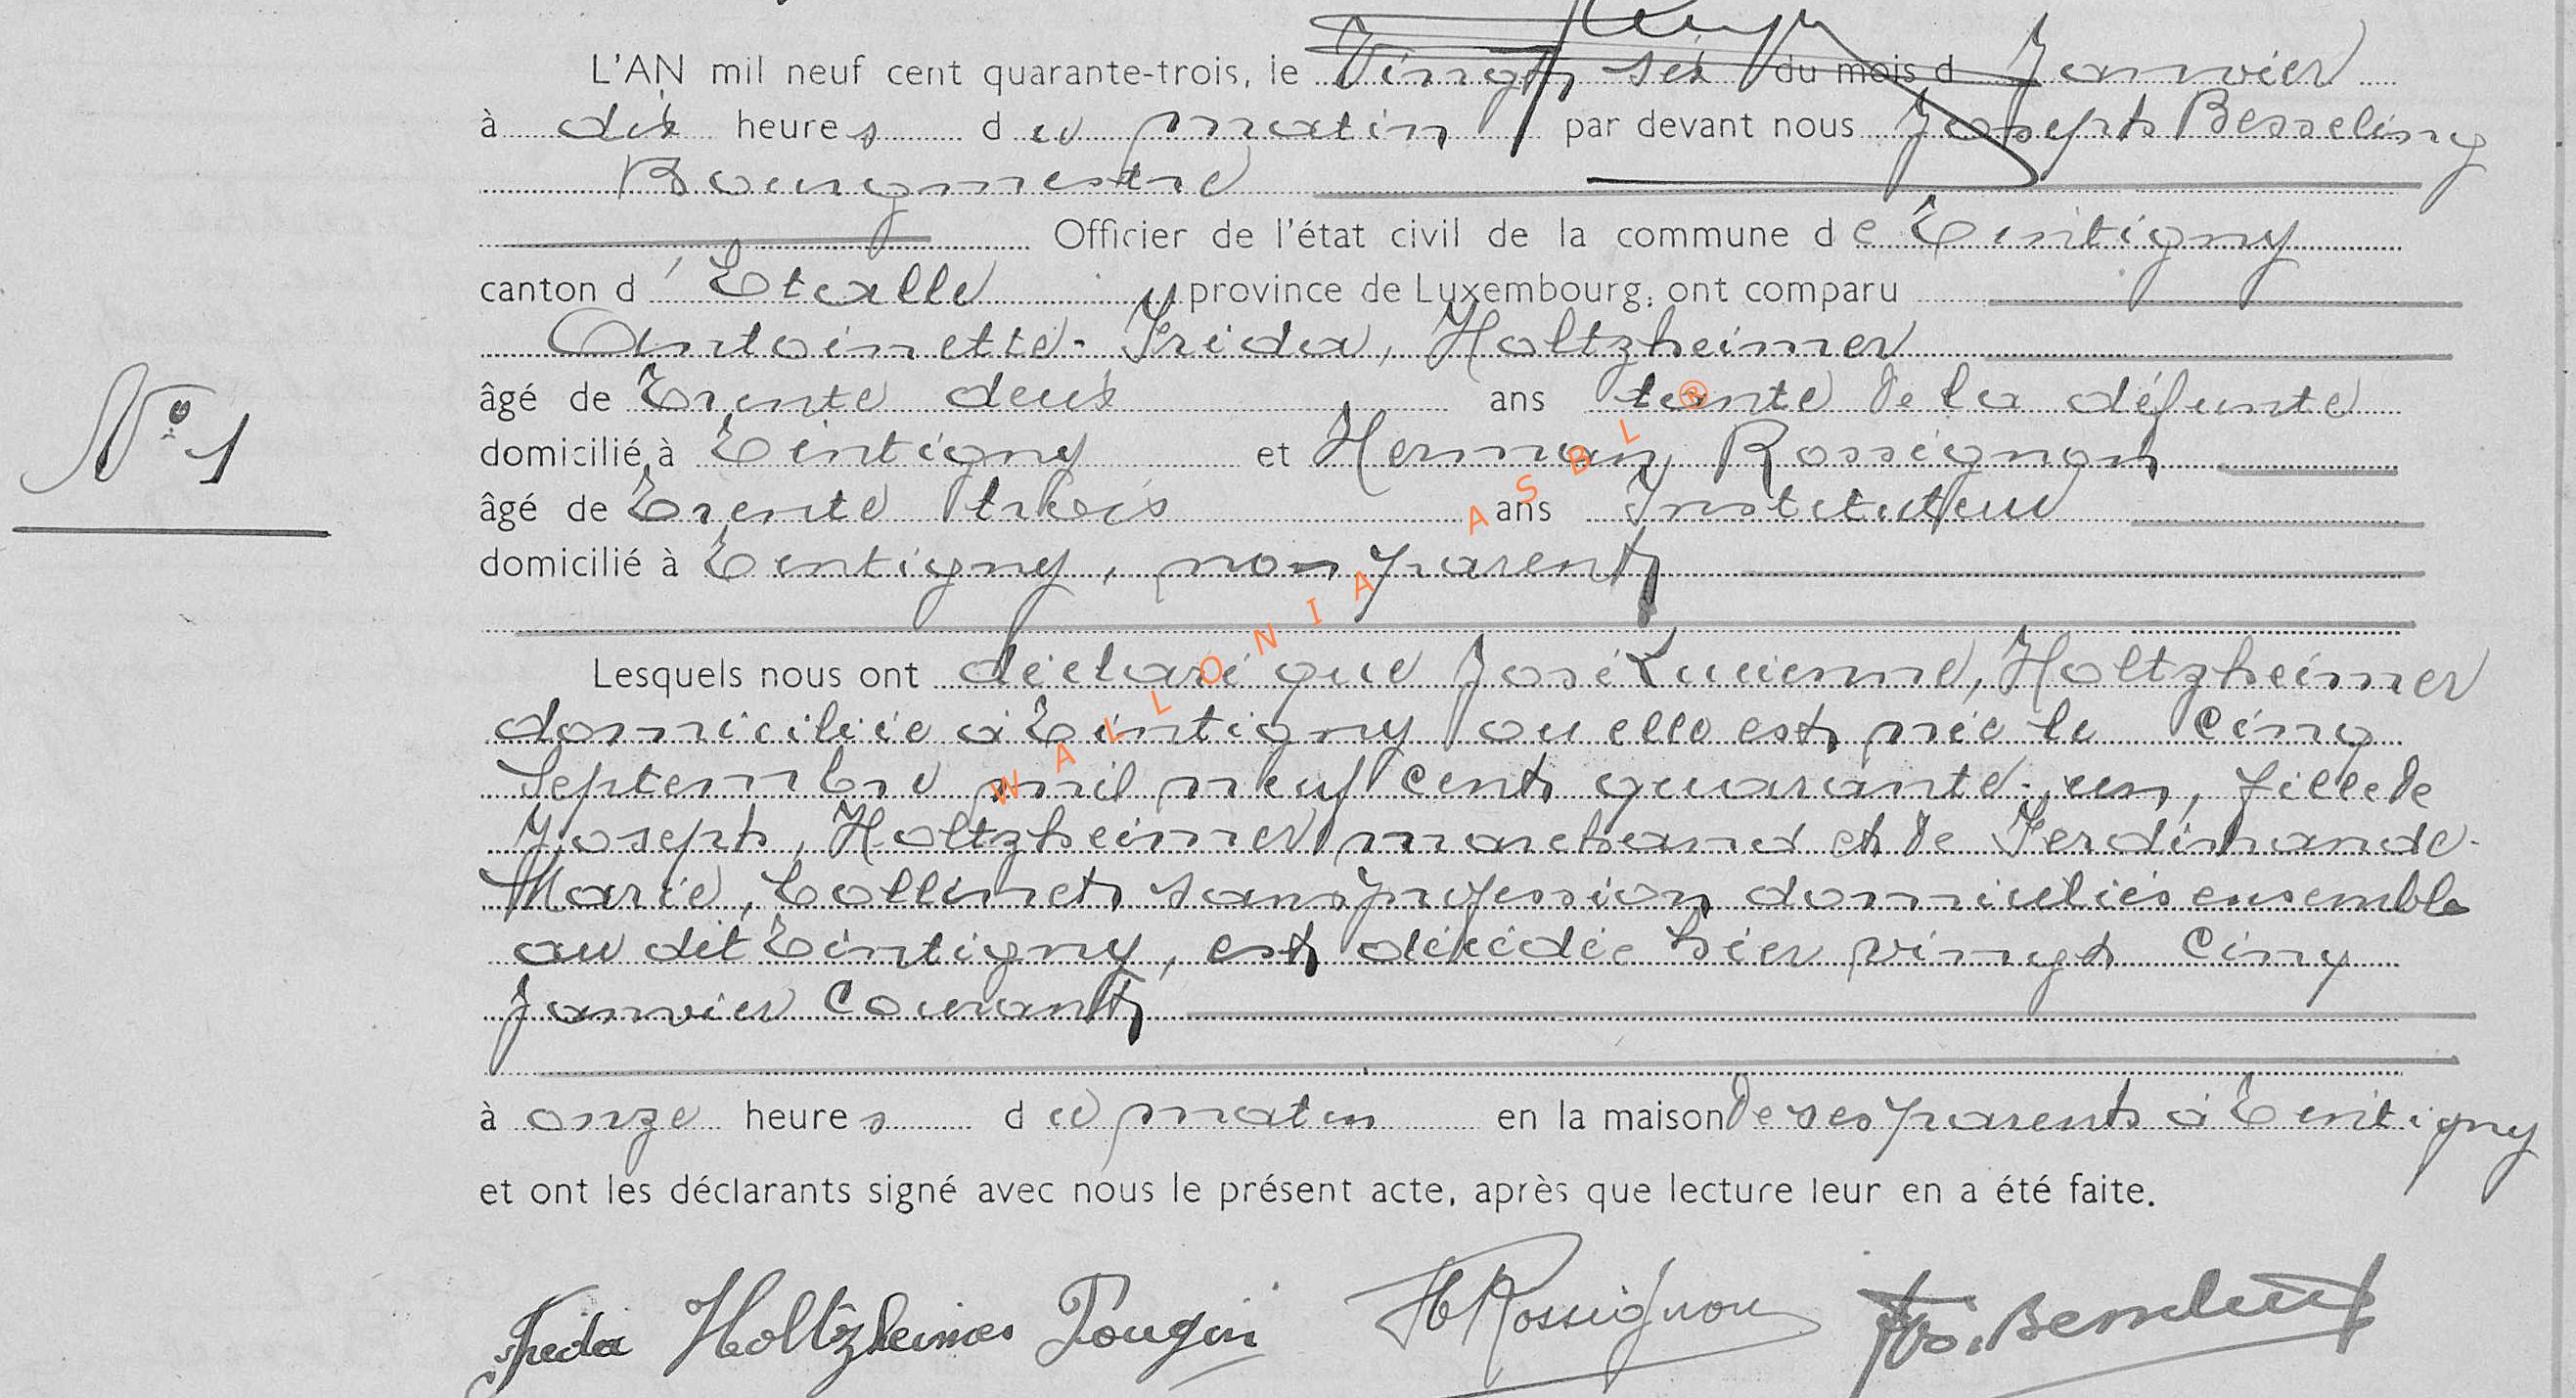 L'AN mil neuf cent quarante-trois, le Vingt six du mois d Janvier
à dix heures du matin par devant nous Joseph Besseling
Bourgmestre
Officier de l'état civil de la commune de Tintigny
canton d'Etalle province de Luxembourg, ont comparu
Antoinette-Frida, Holtzheimer
N° 1
âgé de Trente deux ans tante de la défunte
domicilié à Tintigny et Herman Rossignon
âgé de Trente trois ans Instituteur
domicilié à Tintigny, non parent
Lesquels nous ont déclaré que José Lucienne, Holtzheimer
domiciliée à Tintigny ou elle est née le cinq
Septembre mil neuf cent quarante-un, fille de
Joseph, Holtzheimer marchand et de Ferdinande-
Marie, Collinet sans profession domiciliés ensemble
au dit Tintigny, est décédée hier vingt cinq
Janvier courant
à onze heures du matin en la maison de ses parents à Tintigny
et ont les déclarants signé avec nous le présent acte, après que lecture leur en a été faite.
Frida Holtzheimer Fougin HRossignon Jos. Besseling
WALLONIA ASBL ®